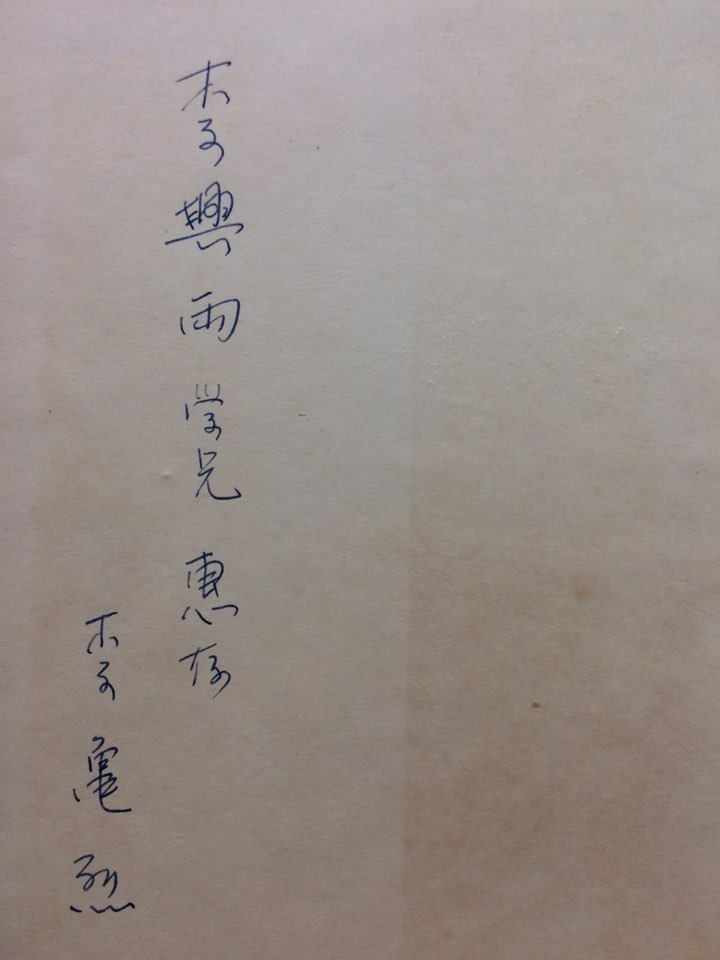 李興雨 学兄 惠存
李亀烈